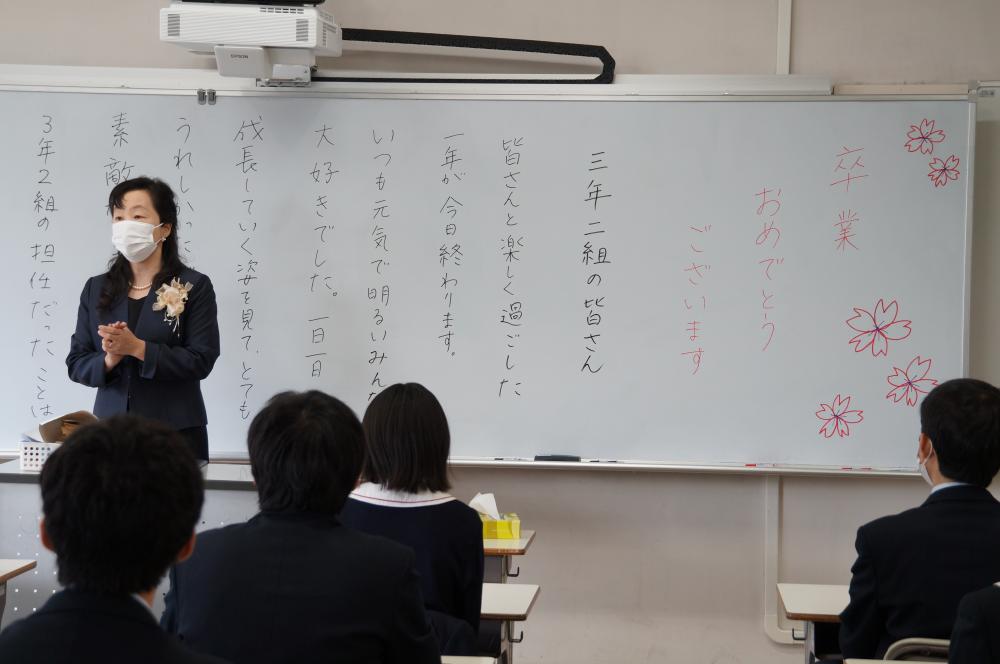 卒業
おめでとう
ございます
三年二組の皆さん
皆さんと楽しく過ごした
一年が今日終わります。
いつも元気で明るいみんな
大好きでした。一日一日
成長していく姿を見て、とても
うれしかった
素敵
3年2組の担任だったことは
EPSON